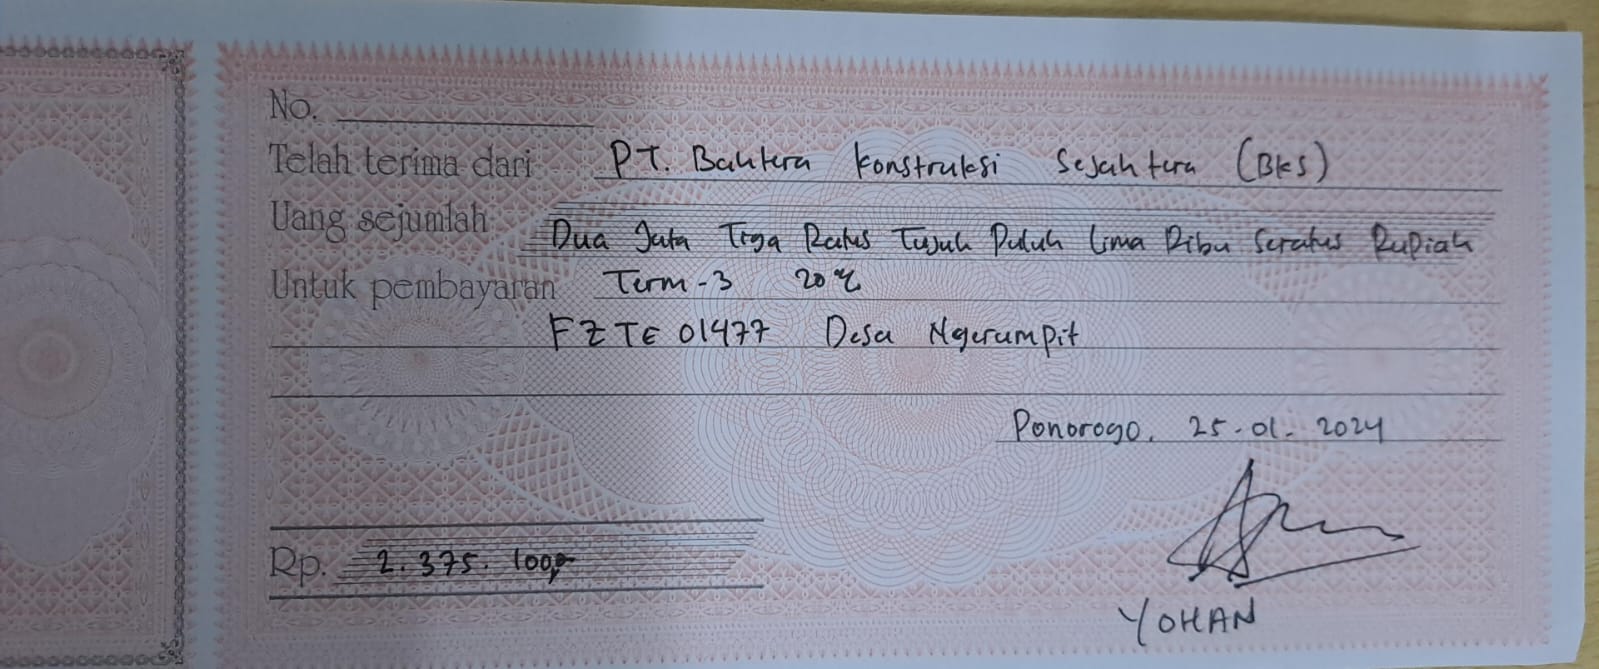 No.
Telah terima dari PT. Bahtera Konstruksi Sejahtera (BKS)
Uang sejumlah Dua Juta Tiga Ratus Tujuh Puluh Lima Ribu Seratus Rupiah
Untuk pembayaran Term-3 20%
FZTE01477 Desa Ngerumpit
Ponorogo, 25-01-2024
Rp. 2.375.100,-
YOHAN